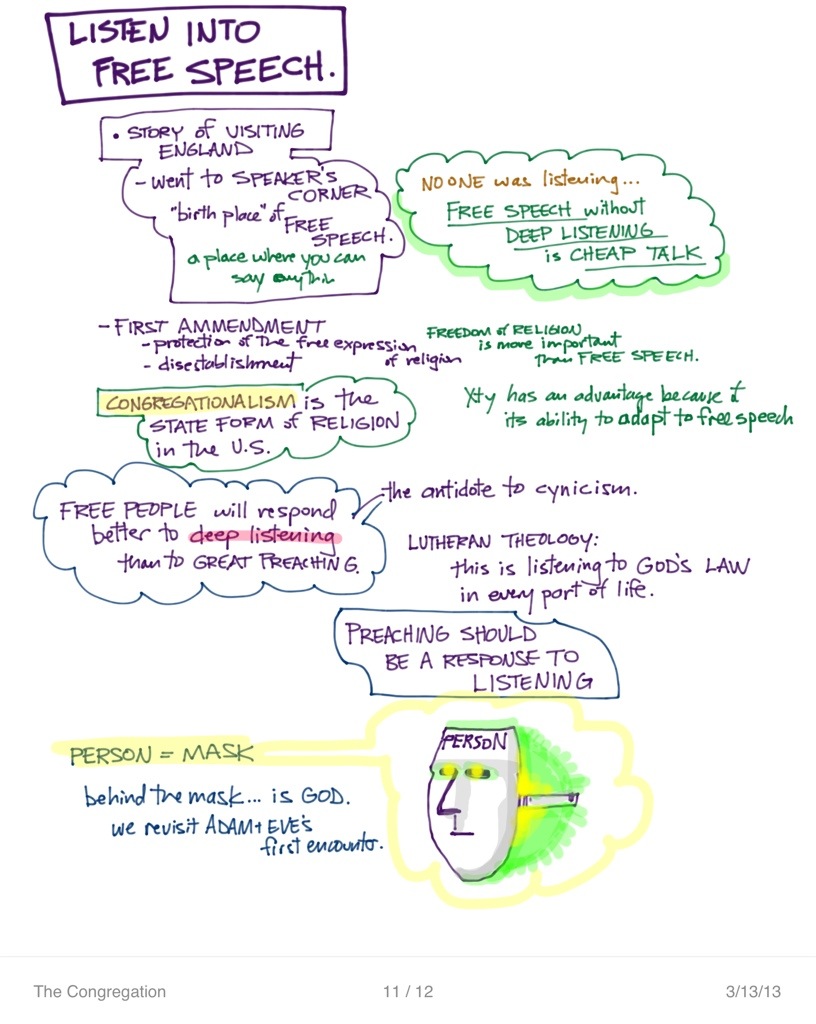 LISTEN INTO
FREE SPEECH.
• STORY of VISITING
ENGLAND
- went to SPEAKER'S
CORNER
"birth place" of
FREE
SPEECH.
a place where you can
say
NO ONE was listening...
FREE SPEECH without
DEEP LISTENING
is CHEAP TALK
- FIRST AMMENDMENT
- protection of the free expression
of religion
- disestablishment
FREEDOM of RELIGION
is more important
than FREE SPEECH.
CONGREGATIONALISM is the
STATE FORM of RELIGION
in the U.S.
X+y has an advantage because of
its ability to adapt to free speech
FREE PEOPLE will respond
better to deep listening
than to GREAT PREACHING.
the antidote to cynicism.
LUTHERAN THEOLOGY:
this is listening to GOD'S LAW
in every part of life.
PREACHING SHOULD
BE A RESPONSE TO
LISTENING
PERSON = MASK
PERSON
behind the mask... is GOD.
we revisit ADAM + EVE'S
first encounter.
The Congregation
11 / 12
3/13/13